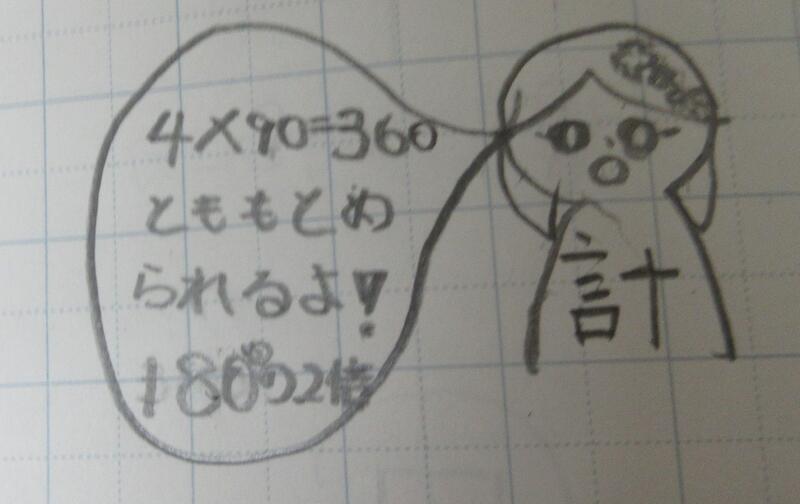 4×90=360
とももとめ
られるよ！
180°の2倍
計